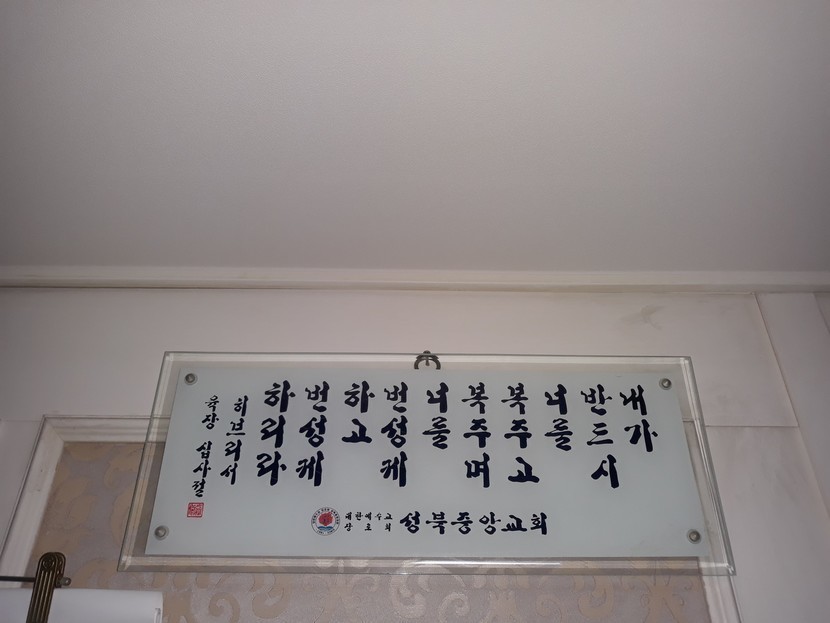 내가
반드시
너를
복주고
복주며
너를
번성케
하고
번성케
하리라
히브리서
육장 십사절
대한예수교
장로회
성북중앙교회